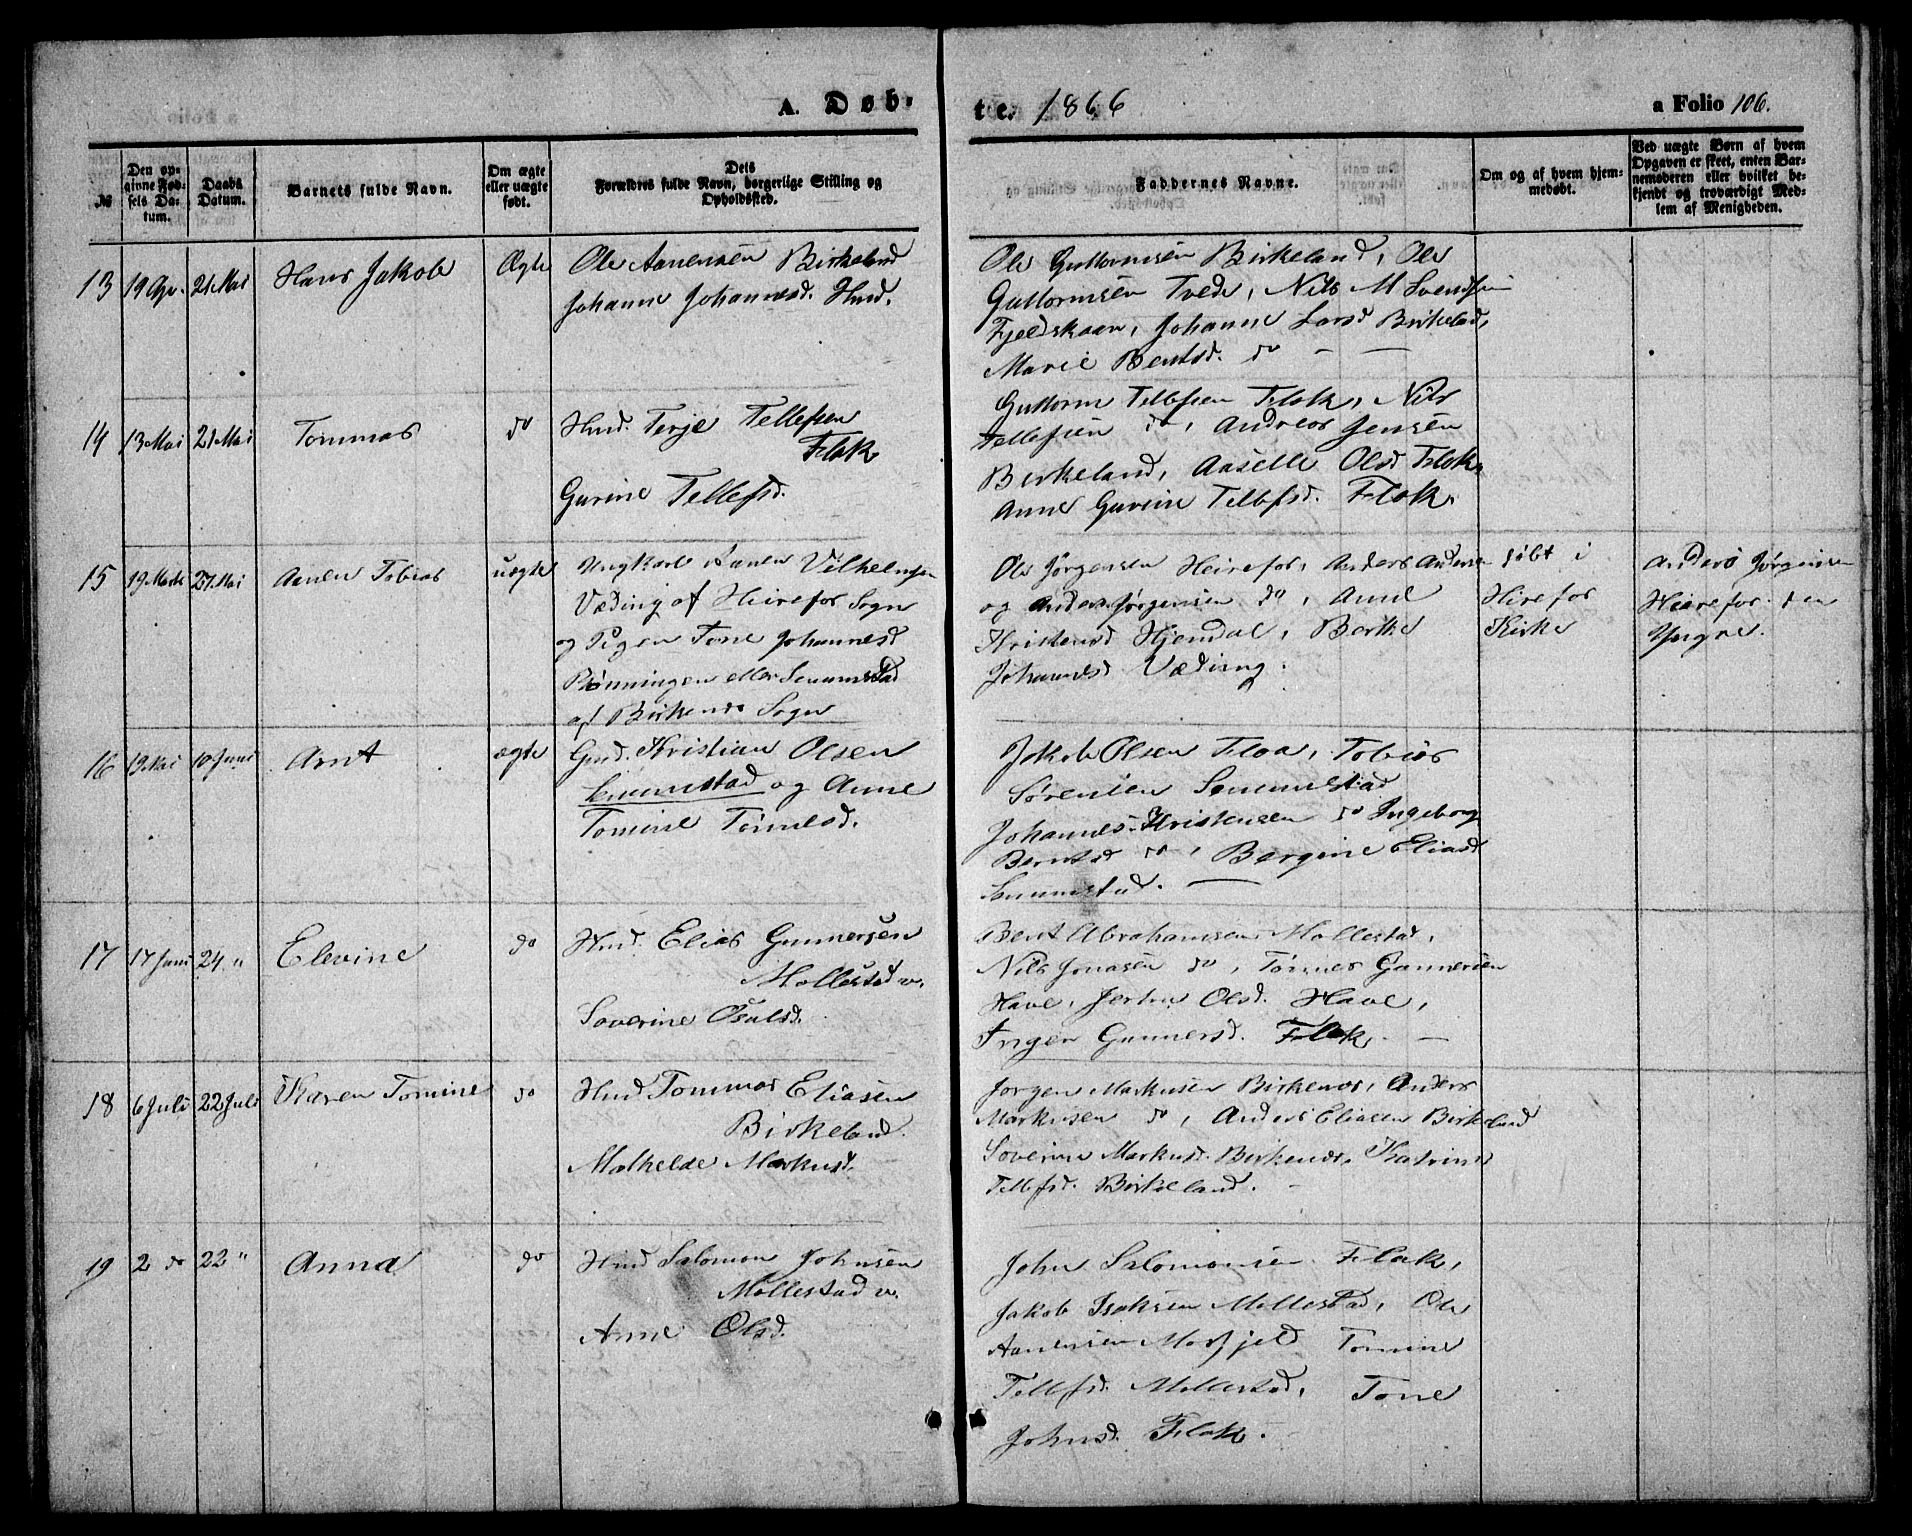 A. Døb-
te. 1866
a Folio 106.
№
Den op-
givne Fød-
sels Da-
tum.
Daabs
Datum.
Barnets fulde Navn.
Om ægte
eller uægte
født.
Dets
Forældres fulde Navn, borgerlige Stilling og
Opholdssted.
Faddernes Navne.
Om og af hvem hjem-
medøbt.
Ved uægte Børn af hvem
Opgaven er skeet, enten Bar-
nemoderen eller hvilket be-
kjendt og troværdigt Med-
lem af Menigheden.
13 19 Apr. 21 Mai Hans Jakob Ægte
Ole Aanensen Birkeland
Johanne Johannesd. Hmd.
Ole Guttormsen Birkeland, Ole
Guttormsen Tvede, Nils M Svendsen
Fjeldskaar, Johanne Larsd Birkeland,
Marie Bentsd. do — —
14 13 Mai 21 Mai Tommas do
Hmd. Terje Tellefsen
Flak
Gurine Tellefsd.
Guttorm Tellefsen Flak, Nils
Tellefsen do, Andreas Jensen
Birkeland, Aaselle Olsd Flak,
Anne Gurine Tellefsd. Flak.
15 19 Marts 27 Mai Aanen Tobias uægte
Ungkarl Aanen Vilhelmsen
Væding af Heirefos Sogn
og Pigen Tone Johannesd
Rønningen eller Senumstad
af Birkenes Sogn
Ole Jørgensen Heirefos, Anders Andersen
og Anders Jørgensen do, Anne
Kristensd Hjendal, Berthe
Johannesd Væding.
døbt i
Hirefos
Kirke
Anders Jørgensen
Heirefos den
Yngre.
16 19 Mai 10 Juni Arnt ægte
Gmd. Kristian Olsen
Senumstad og Anne
Tomine Tømesd.
Jakob Olsen Floa, Tobias
Sørensen Senumstad
Johannes Kristensen do Ingeborg
Berntsd do, Bergine Eliasd
Senumstad. —
17 17 Juni 24 " Elevine do
Hmd. Elias Gunnersen
Mollestad v.
Soverine Osulsd.
Bent Abrahamsen Mollestad,
Nils Jonasen do, Tømes Gunnersen
Have, Olsd. Have,
Ingen Gunnersd. Flak. —
18 6 Juli 22 Juli Karen Tomine do
Hmd Tommas Eliasen
Birkeland.
Mathelde Markusd.
Jørgen Markusen Birkenes, Anders
Markusen do, Anders Eliasen Birkeland
Soverine Markusd. Birkenes, Katrine
Tellefsd. Birkeland. —
19 2 do 22 " Anna do
Hmd Salomon Johnsen
Mollestad v.
Anne Olsd.
John Salomonsen Flak,
Jakob Isaksen Mollestad, Ole
Aanensen Mosfjeld Tomine
Tellefsd. Mollestad, Tone
Johnsd. Flak.